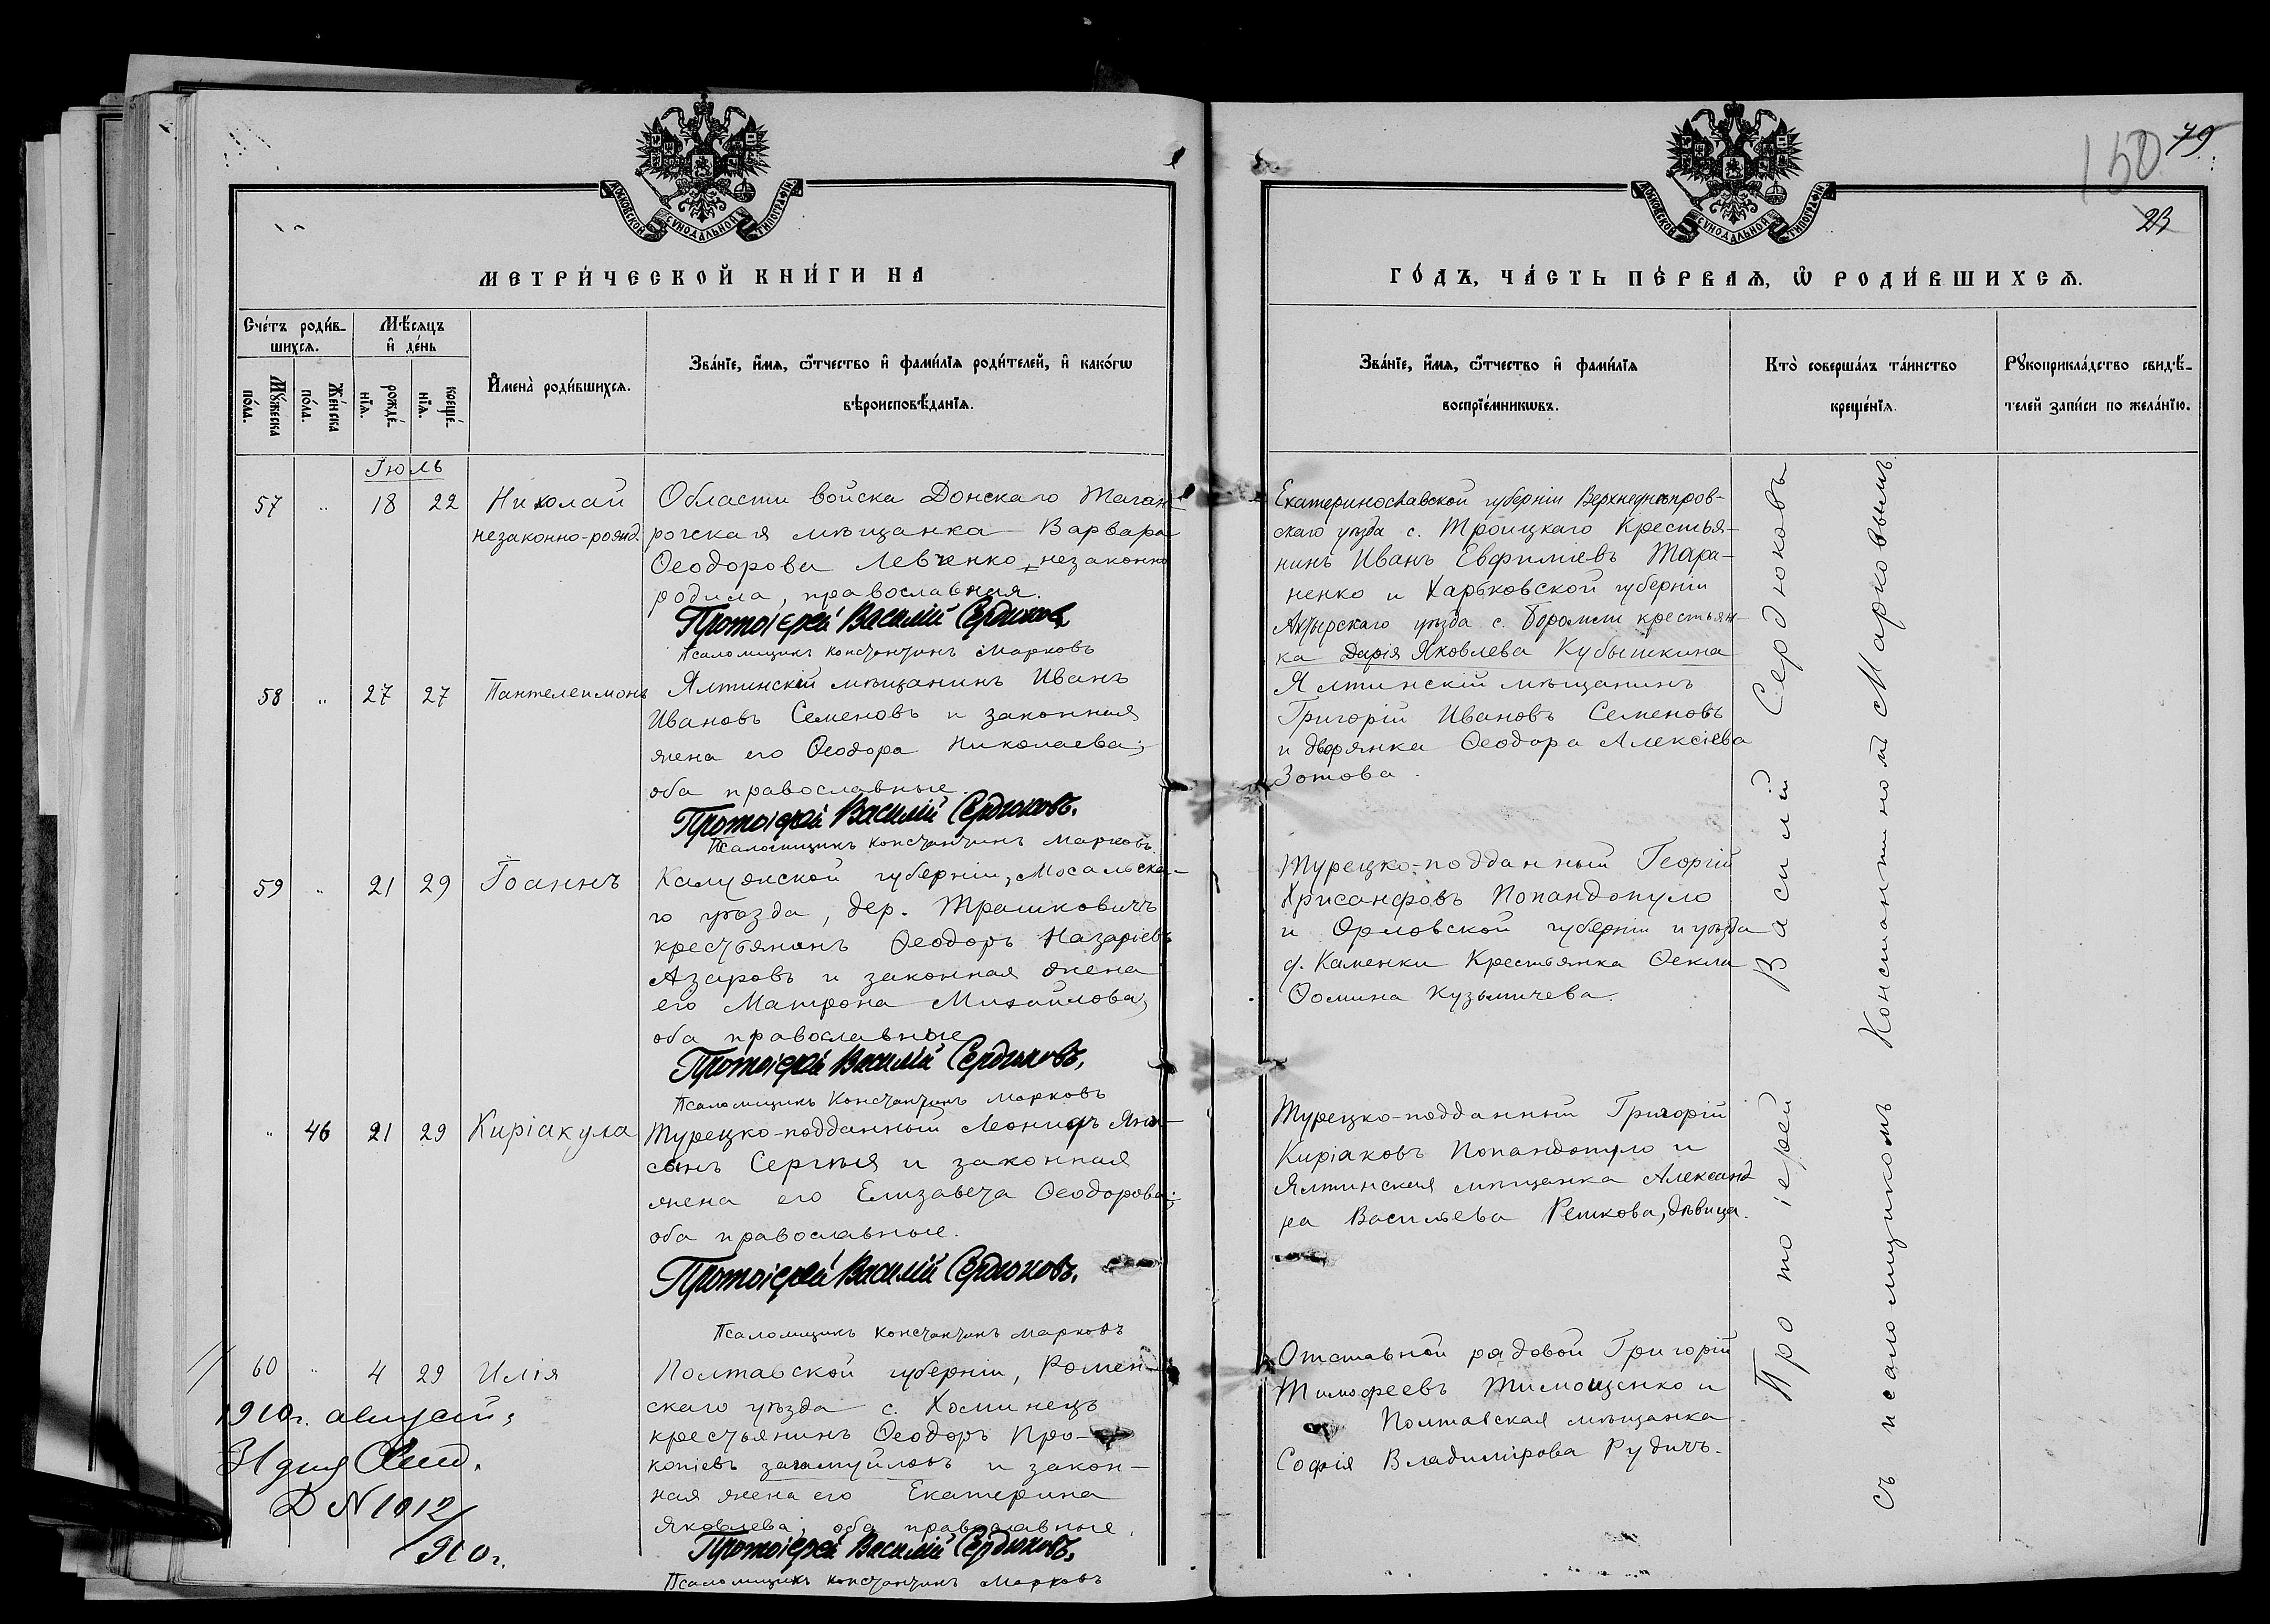 МОСКОВСКОЙ СѴНОДАЛЬНОЙ ТИПОГРАФІИ
МЕТРИ́ЧЕСКОЙ КНИ́ГИ НА
Сче́тъ роди́в-
шихсѧ.
Мѣ́сѧцъ
и҆ де́нь
Мꙋ́жеска
по́ла.
Же́нска
по́ла.
рожде́-
нїѧ.
креще́-
нїѧ.
И҆мена̀ роди́вшихсѧ.
Зва́нїе, и҆́мѧ, ѻ҆́тчество и҆ фами́лїѧ роди́телей, и҆ како́гѡ
вѣроисповѣ́данїѧ.
Іюль
57 " 18 22 Николай
незаконно-рожд.
Области войска Донскаго Таган-
рогская мѣщанка Варвара
Ѳеодорова Левченко незаконно
родила, православная.
Протоіерей Василій Сердюковъ
Псаломщикъ Константинъ Марковъ
58 " 27 27 Пантелеимонъ
Ялтинскій мѣщанинъ Иванъ
Ивановъ Семеновъ и законная
жена его Ѳеодора Николаева;
оба православные.
Протоіерей Василій Сердюковъ.
Псаломщикъ Константинъ Марковъ.
59 " 21 29 Іоаннъ
Калужской губерніи, Мосальска-
го уѣзда, дер. Трашковичъ
крестьянинъ Ѳеодоръ Назаріевъ
Азаровъ и законная жена
его Матрона Михайлова;
оба православные
Протоіерей Василій Сердюковъ.
Псаломщикъ Константинъ Марковъ
" 46 21 29 Киріакула
Турецко-подданный Леонидъ
сынъ Сергѣя и законная
жена его Елизавета Ѳеодорова;
оба православные.
Протоіерей Василій Сердюковъ.
Псаломщикъ Константинъ Марковъ
60 " 4 29 Илія
Полтавской губерніи, Ромен-
скаго уѣзда с. Хоминецъ
крестьянинъ Ѳеодоръ Про-
копіевъ и закон-
ная жена его Екатерина
Яковлева; оба православные.
Протоіерей Василій Сердюковъ.
Псаломщикъ Константинъ Марковъ
1910г.
31 дня
Д N 1012/
910г.
150 79
23
МОСКОВСКОЙ СѴНОДАЛЬНОЙ ТИПОГРАФІИ
ГО́ДЪ, ЧА́СТЬ ПЕ́РВАѦ, Ѡ҆ РОДИ́ВШИХСѦ.
Зва́нїе, и҆́мѧ, ѻ҆́тчество и҆ фами́лїѧ
воспрїе́мникѡвъ.
Кто̀ соверша́лъ та́инство
креще́нїѧ.
Рꙋкоприкла́дство свидѣ́-
телей за́писи по жела́нїю.
Екатеринославской губерніи Верхнеднѣпров-
скаго уѣзда с. Троицкаго Крестья-
нинъ Иванъ Евфиміевъ Тара-
ненко и Харьковской губерніи
Ахтырскаго уѣзда с. Боромли крестьян-
ка Дарія Яковлева Кубышкина
Ялтинскій мѣщанинъ
Григорій Ивановъ Семеновъ
и дворянка Ѳеодора Алексіева
Зотова.
Турецко-подданный Георгій
Хрисанфовъ Попандопуло
и Орловской губерніи и уѣзда
д. Каменки Крестьянка Ѳекла
Ѳомина Кузьмичева.
Турецко-подданный Григорій
Киріаковъ Попандопуло и
Ялтинская мѣщанка Александ
ра Васильева Решкова, дѣвица.
Отставной рядовой Григорій
Тимофеевъ Тимощенко и
Полтавская мѣщанка
Софія Владимірова Рудичъ.
Протоіерей Василій Сердюковъ
съ псаломщикомъ Константиномъ Марковымъ